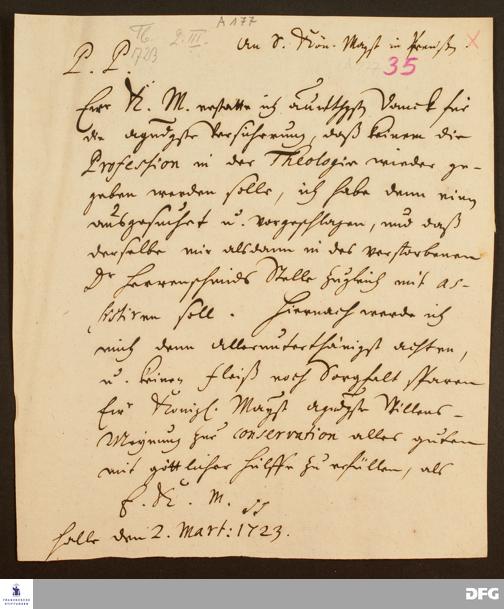 A 177
Th.
1723
L. III.
An S. Kön. Mayst in Preußen.
35
P. P.
Ewr K. M. erstatte ich allerunterthgst Danck für
die agndgste Versicherung, daß keinem die
Profession in der Theologie wieder ge-
geben werden solle, ich habe denn einen
ausgesuchet u. vorgeschlagen, und daß
derselbe mir alsdann in des verstorbenen
Dr Herrenschmids Stelle zugleich mit as-
sistiren soll. Hiernach werde ich
mich denn allerunterthänigst achten,
u. keinen Fleiß noch Sorgfalt spaaren
Ewr Königl. Mayst agndgste Willens-
Meynung zur conservation alles guten
mit göttlicher Hülffe zu erfüllen, als
E. K. M.
Halle den 2. Mart: 1723.
FRANCKESCHE
STIFTUNGEN
DFG